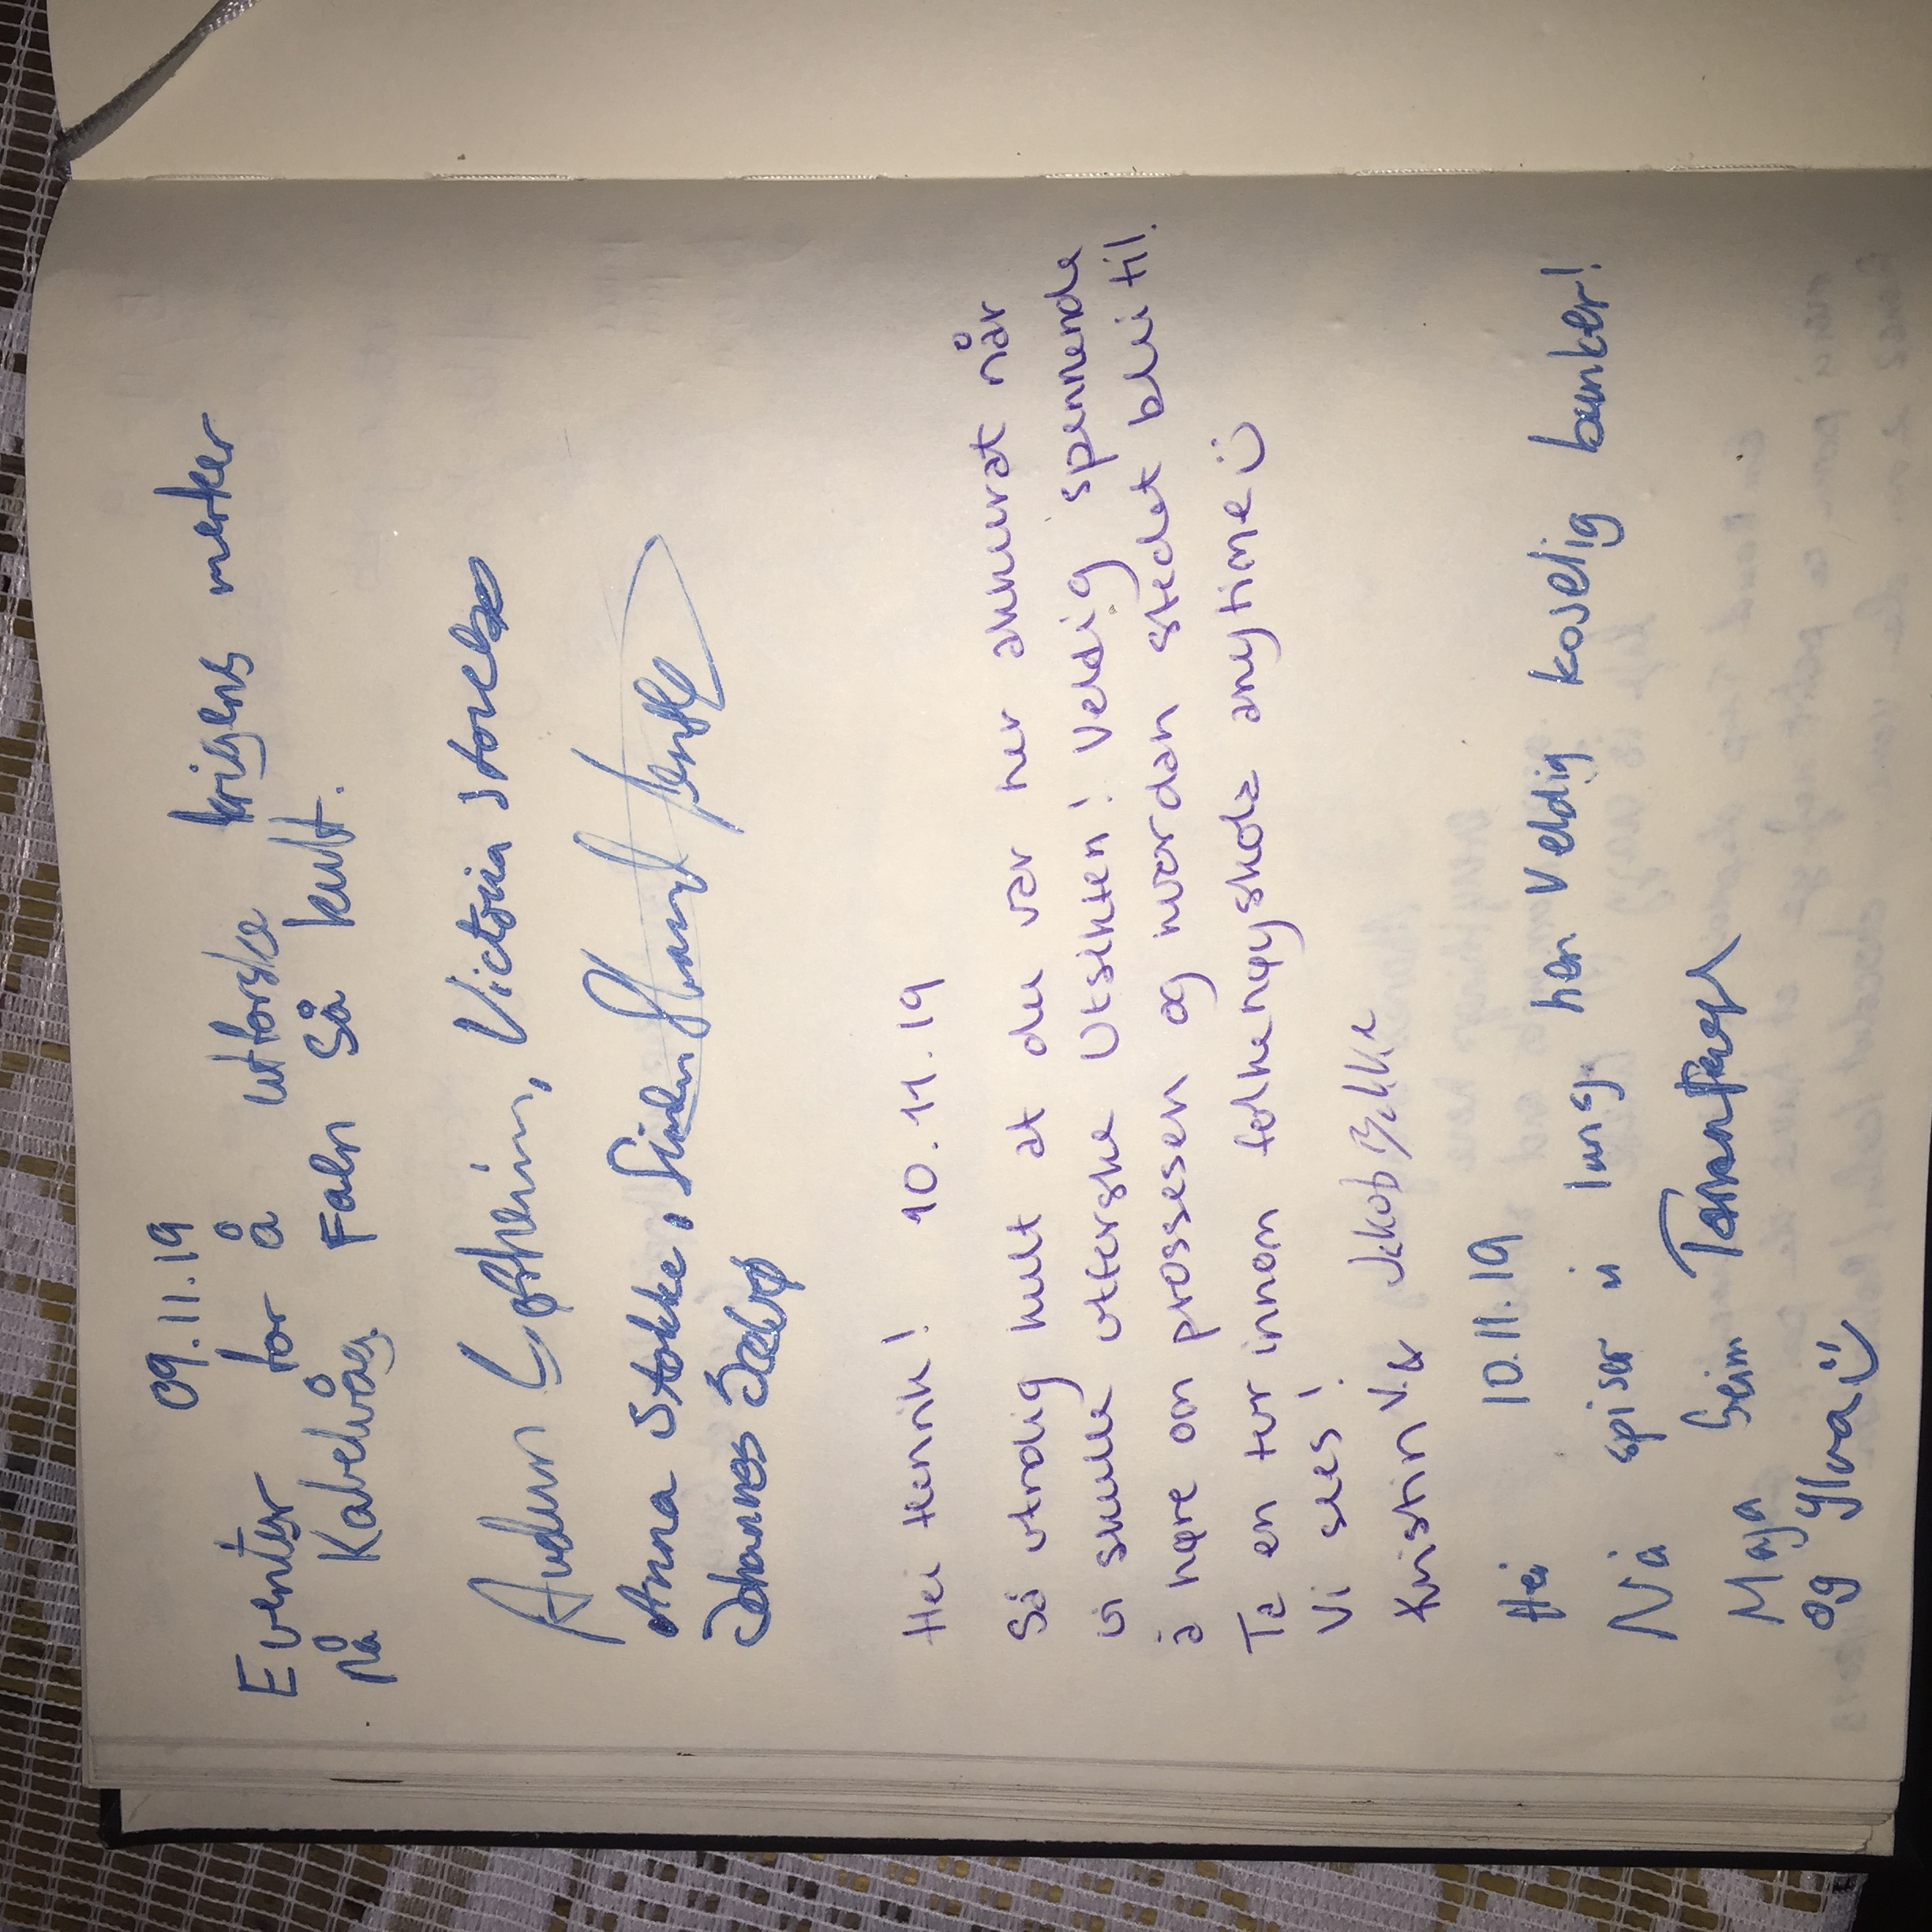 09.11.19
Eventer for å utforske krigens merker
på Kabelvåg. Faen Så kult.
Audun Loftheim, Victoria
Anna Stokke,
Johannes
Hei Henrik! 10.11.19
Så utrolig kult at du var her akkurat når
vi skulle utforske Utsikten! Veldig spennende
å høre om prosessen og hvordan stedet blei til.
Ta en tur innom folkehøyskola anytime :)
Vi sees!
Kristin V. & Jakob
Hei 10.11.19
Nå spiser vi lunsj. her Veldig koselig bunker!
Maja
og Ylva :)